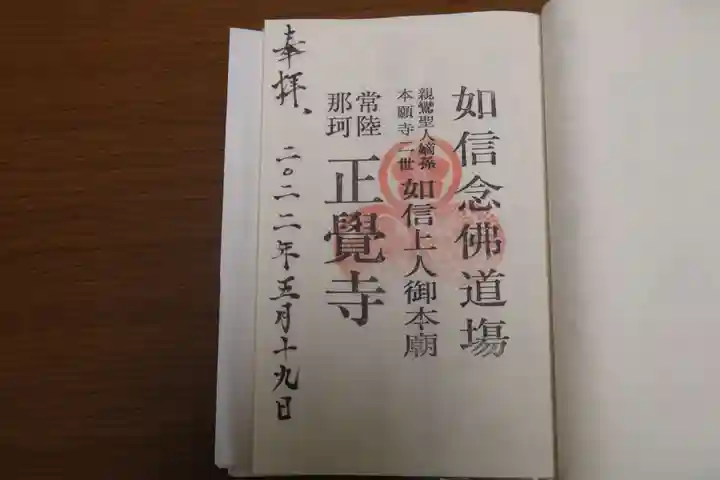 如信念佛道場
親鸞聖人嫡孫
本願寺二世
如信上人御本廟
常陸
那珂
正覺寺
奉拝、
二〇二二年五月十九日